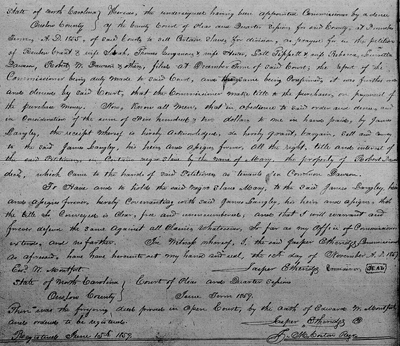 State of North Carolina } Whereas, the undersigned having been appointed Commissioner by a decree
Onslow County } of the County Court of Pleas and Quarter Sessions for said County, at December
Term, A.D. 185 , of said County to sell certain Slaves for division, on prayer for in the petition
of Reuben Grant & wife Sarah, Ferrier Ferguson & wife Susan, Scott Tippett & wife Rebecca,
Dawson, Robert W. Dawson & others, filed at December Term of said Court, the report of the
Commissioner being duly made to said Court, and same being confirmed, it was further ordered
and decreed by said Court, that the Commissioner make title to the purchaser, on payment of
the purchase Money. Now, Know all Men, that in obedience to said order and decree and
in consideration of the sum of Nine hundred & two dollars to me in hand paid, by James
Langley, the receipt whereof is hereby acknowledged, do hereby grant, bargain, sell and convey
to the said James Langley, his heirs and assigns forever, all the right, title and interest of
the said Petitioners in Certain negro slave by the name of Mary, the property of Robert Dawson
decd, which came to the hands of said Petitioners as tenants in Common Dawson.
To Have and to hold the said negro slave Mary, to the said James Langley, his heirs
and assigns forever, hereby Covenanting with said James Langley, his heirs and assigns, that
the title so Conveyed is clear, free and unencumbered, and that I will warrant and
forever defend the same against all Claims Whatsoever, so far as my Office of Commissioner
extends, and no further. In Witness whereof, I, the said Jasper Etheridge Commissioner
as aforesaid, have hereunto set my hand and seal, the 15th day of November A.D. 1857
Edwd. W. Montfort Jasper Etheridge Commissioner, SEAL
State of North Carolina } Court of Pleas and Quarter Sessions
Onslow County } June Term 1859.
Then was the foregoing deed proved in Open Court, by the oath of Edward W. Montfort
and ordered to be registered. Jasper Etheridge C
Registered June 15th 1859.